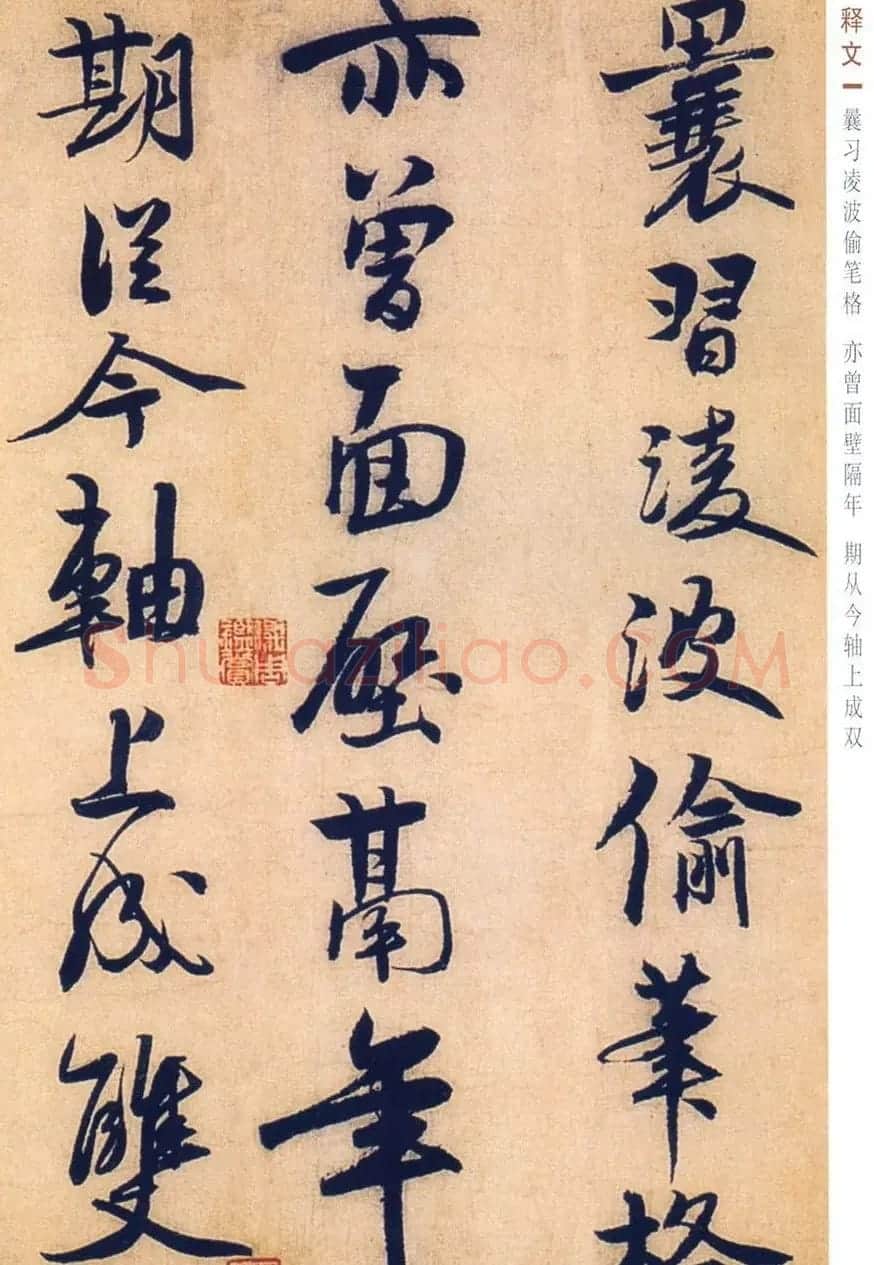 释文
曩习凌波偷笔格 亦曾面壁隔年 期从今轴上成双
曩習淩波偷筆格
亦曾面壁鬲年
期從今軸上成雙
Shufaziliao.COM